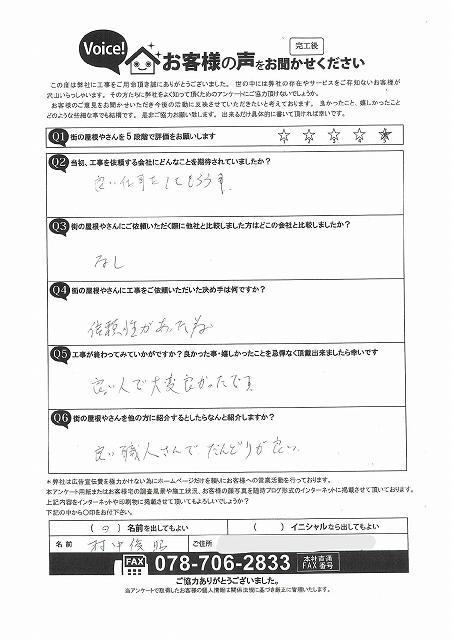 Voice!
完工後
お客様の声をお聞かせください
この度は弊社に工事をご用命頂き誠にありがとうございました。 世の中には弊社の存在やサービスをご存知ないお客様が
沢山いらっしゃいます。 その方たちに弊社をよく知って頂くためのアンケートにご協力頂けないでしょうか。
お客様のご意見をお聞かせいただき今後の活動に反映させていただきたいと考えております。 良かったこと、嬉しかったこと
どのような些細な事でも結構です。 是非ご協力お願い致します。 出来るだけ具体的に書いて頂ければ幸いです。
Q1 街の屋根やさんを5段階で評価をお願いします ☆ ☆ ☆ ☆ ★
Q2 当初、工事を依頼する会社にどんなことを期待されていましたか?
良い仕事をしてもらう事
Q3 街の屋根やさんにご依頼いただく際に他社と比較しました方はどこの会社と比較しましたか?
なし
Q4 街の屋根やさんに工事をご依頼いただいた決め手は何ですか?
信頼性があった為
Q5 工事が終わってみていかがですか?良かった事・嬉しかったことを忌憚なく頂戴出来ましたら幸いです
良い人で大変良かったです
Q6 街の屋根やさんを他の方に紹介するとしたらなんと紹介しますか?
良い職人さんで だんどりが良い
*弊社は広告宣伝費を極力かけない為にホームページだけを頼りにお客様への営業活動を行っております。
本アンケート用紙またはお客様宅の調査風景や施工状況、お客様の顔写真を随時ブログ形式のインターネットに掲載させて頂いております。
上記内容をインターネットや印刷物に掲載させて頂いてもよろしいでしょうか?
下記の中から〇印をお付下さい。
( ○ ) 名前を出してもよい ( ) イニシャルなら出してもよい
名前 村中俊昭 ご住所
FAX 078-706-2833 本社直通 FAX番号
ご協力ありがとうございました。
当アンケートで取得したお客様の個人情報は関係法規に基づき厳正に管理いたします。